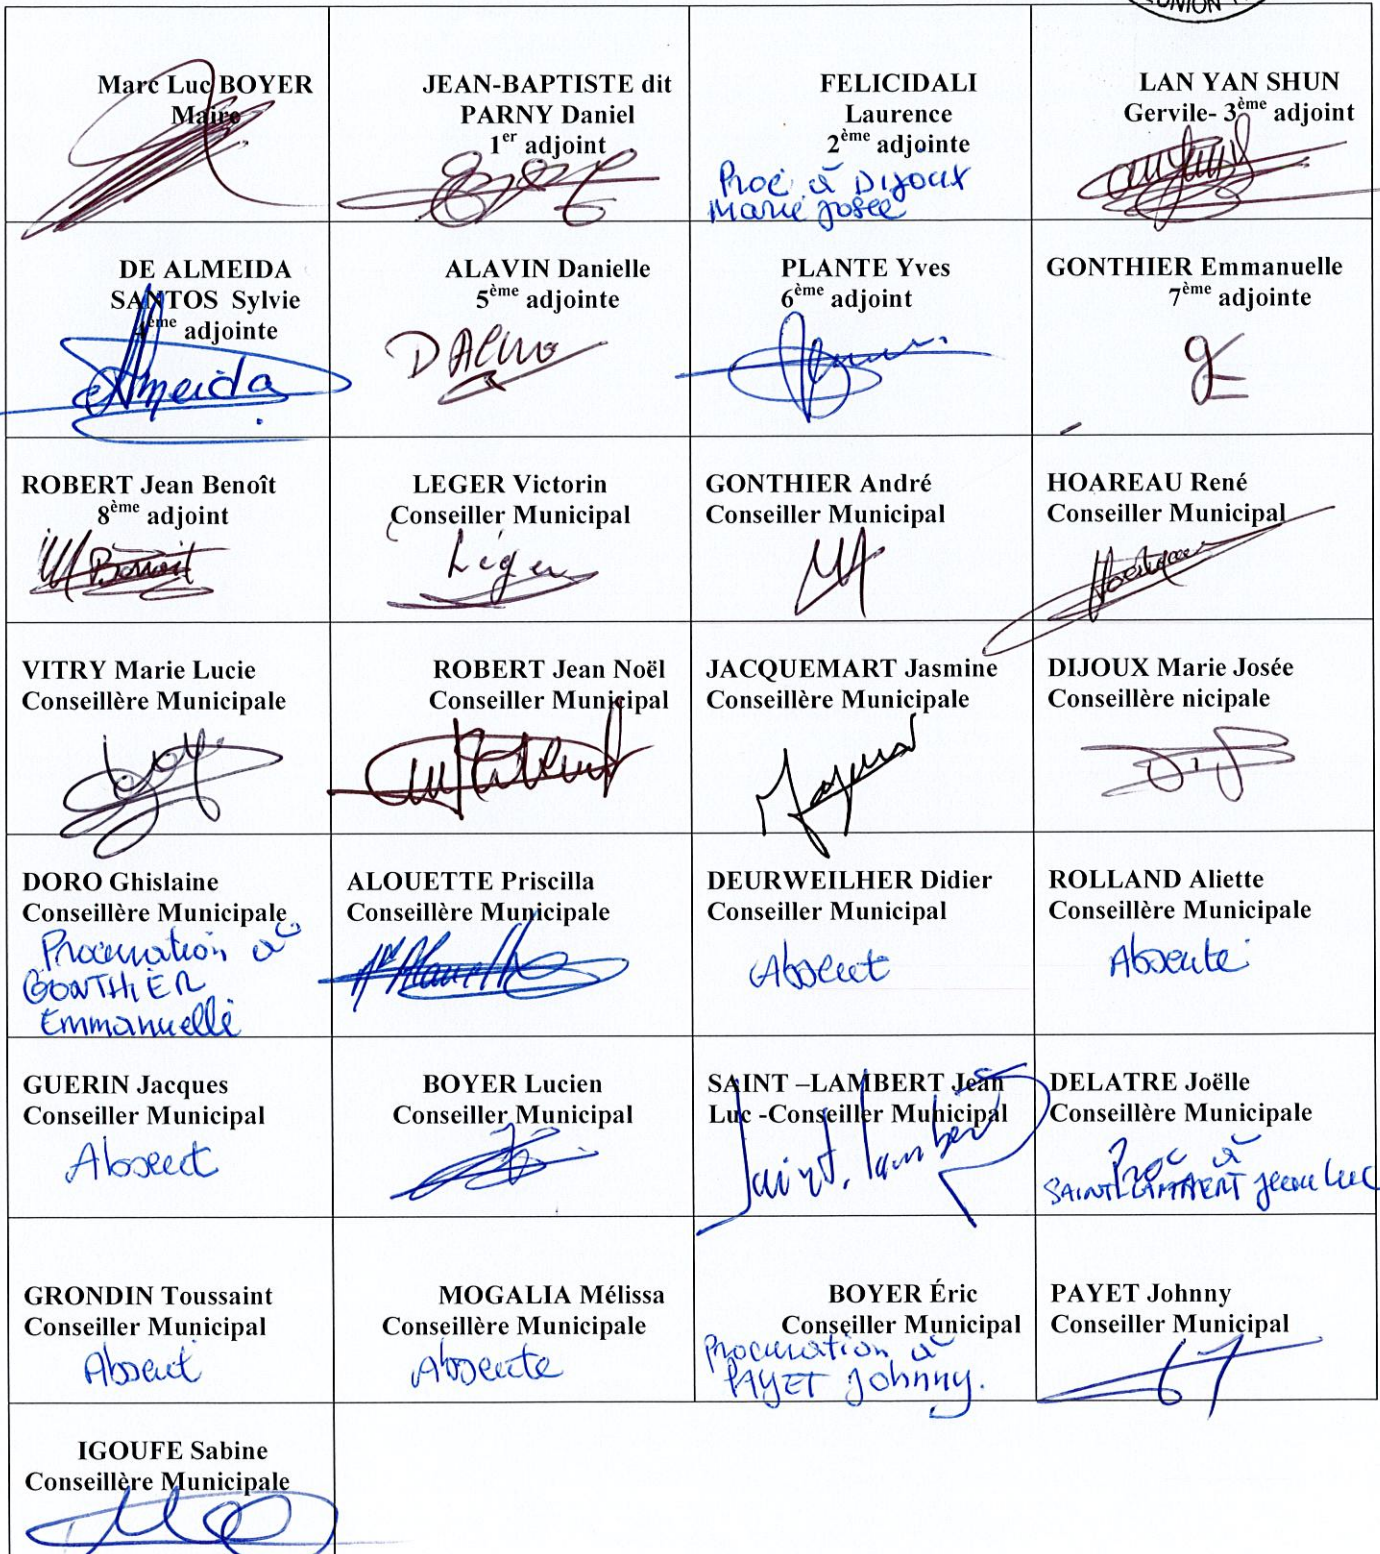 UNION
Marc Luc BOYER
Maire
JEAN-BAPTISTE dit
PARNY Daniel
1er adjoint
FELICIDALI
Laurence
2ème adjointe
Proc à DIJOUX
Marie Josée
LAN YAN SHUN
Gervile- 3ème adjoint
DE ALMEIDA
SANTOS Sylvie
4ème adjointe
Almeida
ALAVIN Danielle
5ème adjointe
PLANTE Yves
6ème adjoint
GONTHIER Emmanuelle
7ème adjointe
ROBERT Jean Benoît
8ème adjoint
Benoit
LEGER Victorin
Conseiller Municipal
Léger
GONTHIER André
Conseiller Municipal
HOAREAU René
Conseiller Municipal
VITRY Marie Lucie
Conseillère Municipale
ROBERT Jean Noël
Conseiller Municipal
JACQUEMART Jasmine
Conseillère Municipale
DIJOUX Marie Josée
Conseillère nicipale
DORO Ghislaine
Conseillère Municipale
Procuration à
GONTHIER
Emmanuelle
ALOUETTE Priscilla
Conseillère Municipale
DEURWEILHER Didier
Conseiller Municipal
Absent
ROLLAND Aliette
Conseillère Municipale
Absente
GUERIN Jacques
Conseiller Municipal
Absent
BOYER Lucien
Conseiller Municipal
SAINT –LAMBERT Jean
Luc -Conseiller Municipal
Saint. Lambert
DELATRE Joëlle
Conseillère Municipale
Proc à
SAINT LAMBERT Jean Luc
GRONDIN Toussaint
Conseiller Municipal
Absent
MOGALIA Mélissa
Conseillère Municipale
Absente
BOYER Éric
Conseiller Municipal
Procuration à
PAYET Johnny.
PAYET Johnny
Conseiller Municipal
IGOUFE Sabine
Conseillère Municipale